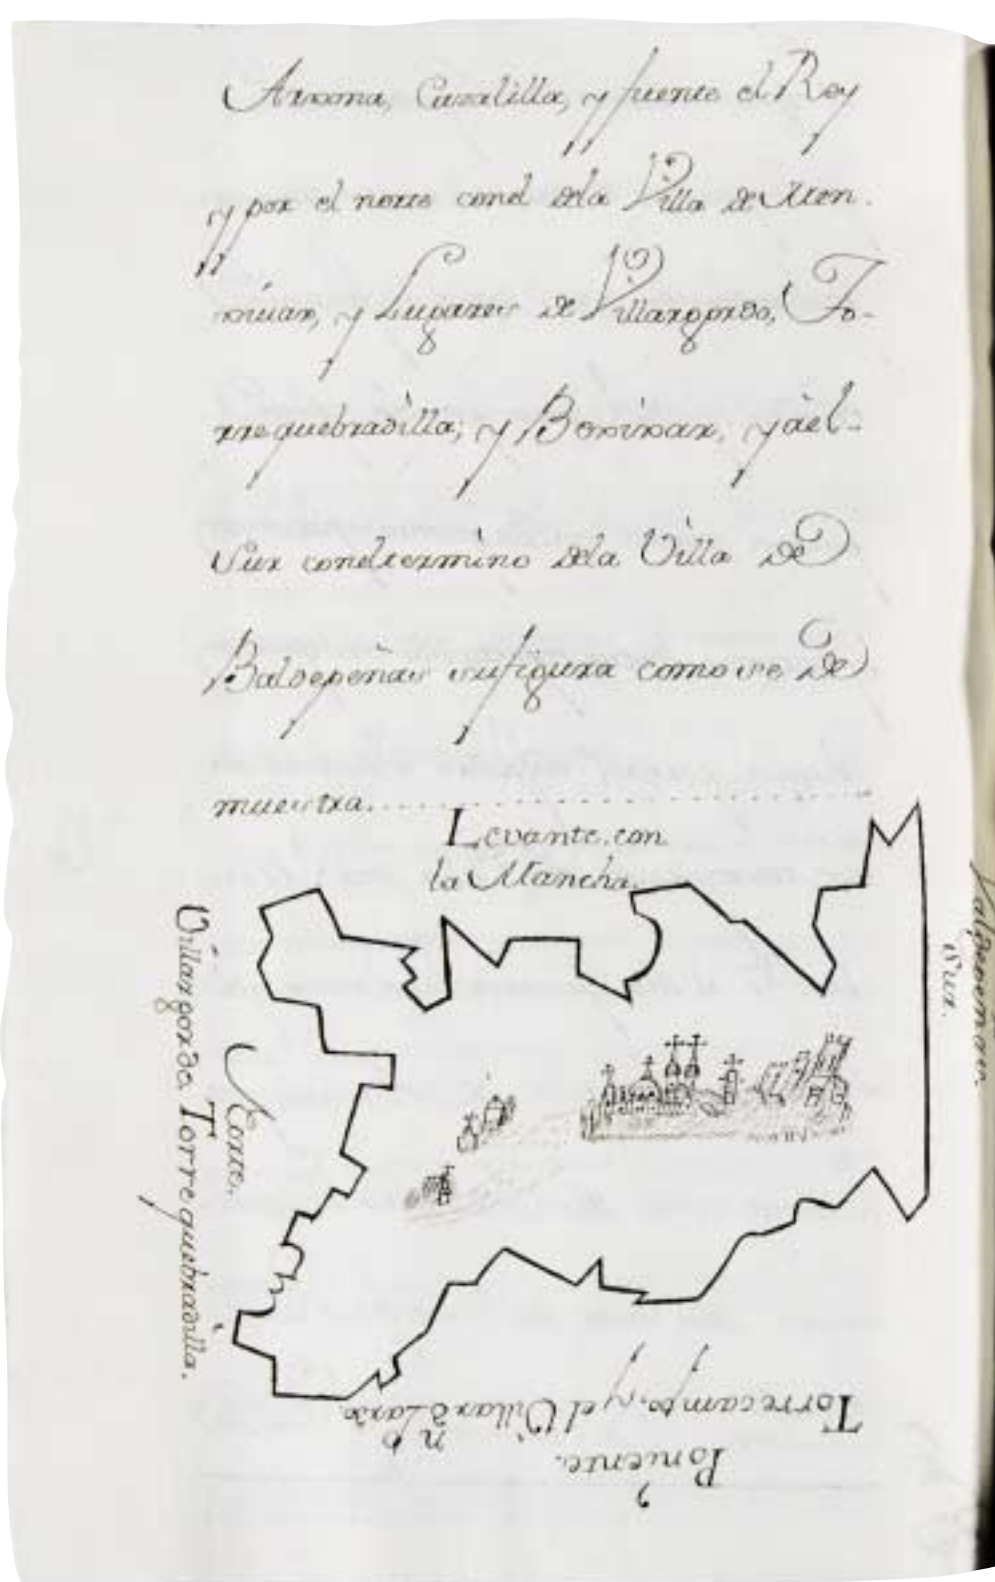 Arxona, Cazalilla, y fuente el Rey
y por el norte conel dela Villa de Men
xiuar, y Lugares de Villargordo, To-
rrequebradilla, y Bexixar, y àel-
Sur coneltermino dela Villa de
Baldepeñas sufigura como se de
muestra.
Levante. con
la Mancha.
Valdepeñas.
Sur.
Norte.
Villargordo. Torrequebradilla.
Torrecampo, y el Villar d Lardo.
n
Poniente.